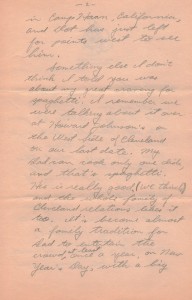 - 2 -
in Camp Haan, California,
and Dad has just left
for points west to see
him.
Something else I don't
think I told you was
about my great craving for
spaghetti. I remember we
were talking about it over
at Howard Johnson's on
the West Side of Cleveland
on our last date. My
Dad can cook only one dish,
and that's spaghetti.
He is really good, (we think)
and the family of
Cleveland relations like it
too. It's become almost
a family tradition for
Dad to entertain the
crowd, at least once a year, on New
Year's Day, with a big